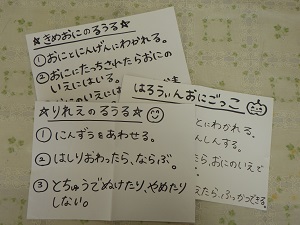 ☆きめおにのるうる☆
①おにとにんげんにわかれる。
②おににたっちされたらおにの
いえにはいる。
はろうぃんおにごっこ
とにわかれる。
しんする。
たら、おにのいえで
えたら、ふっかつできる。
☆りれえのるうる☆
①にんずうをあわせる。
②はしりおわったら、ならぶ。
③とちゅうでぬけたり、やめたり
しない。